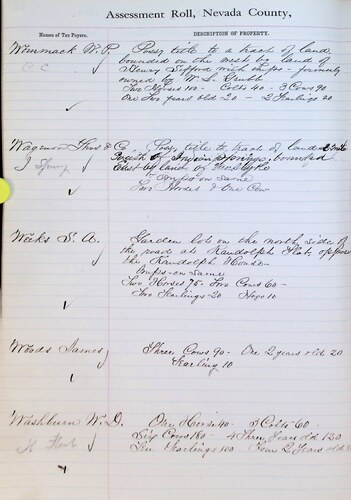 Assessment Roll, Nevada County,
Names of Tax Payers.
DESCRIPTION OF PROPERTY.
Wimmack W. P. Poss, title to a tract of land
C C bounded on the west by land of
Henry with imps - formerly
owned by W. S.
Two Horses 100 - Colts 40 - 3 Cows 90
One Two years old 20 - 2 Yearlings 20
Wagenor Thos & C Poss, title to tract of land 2 miles
South of Indian Springs, bounded
East by land of
Imps on same
Two Horses & One Cow
Weeks S. A. Garden lot on the north side of
the road at Randolph Flat, oppos
the Randolph House
Imps on same
Two Horses 75 - Two Cows 60 -
Two Yearlings 20 Hogs 10
Woods James Three Cows 90 - One 2 years old 20
Yearling 10
Washburn W. D. One Horse 40 - 3 Colts 60 -
Six Cows 180 - 4 Three years old 120
Yearlings 100 Four 2 Years old